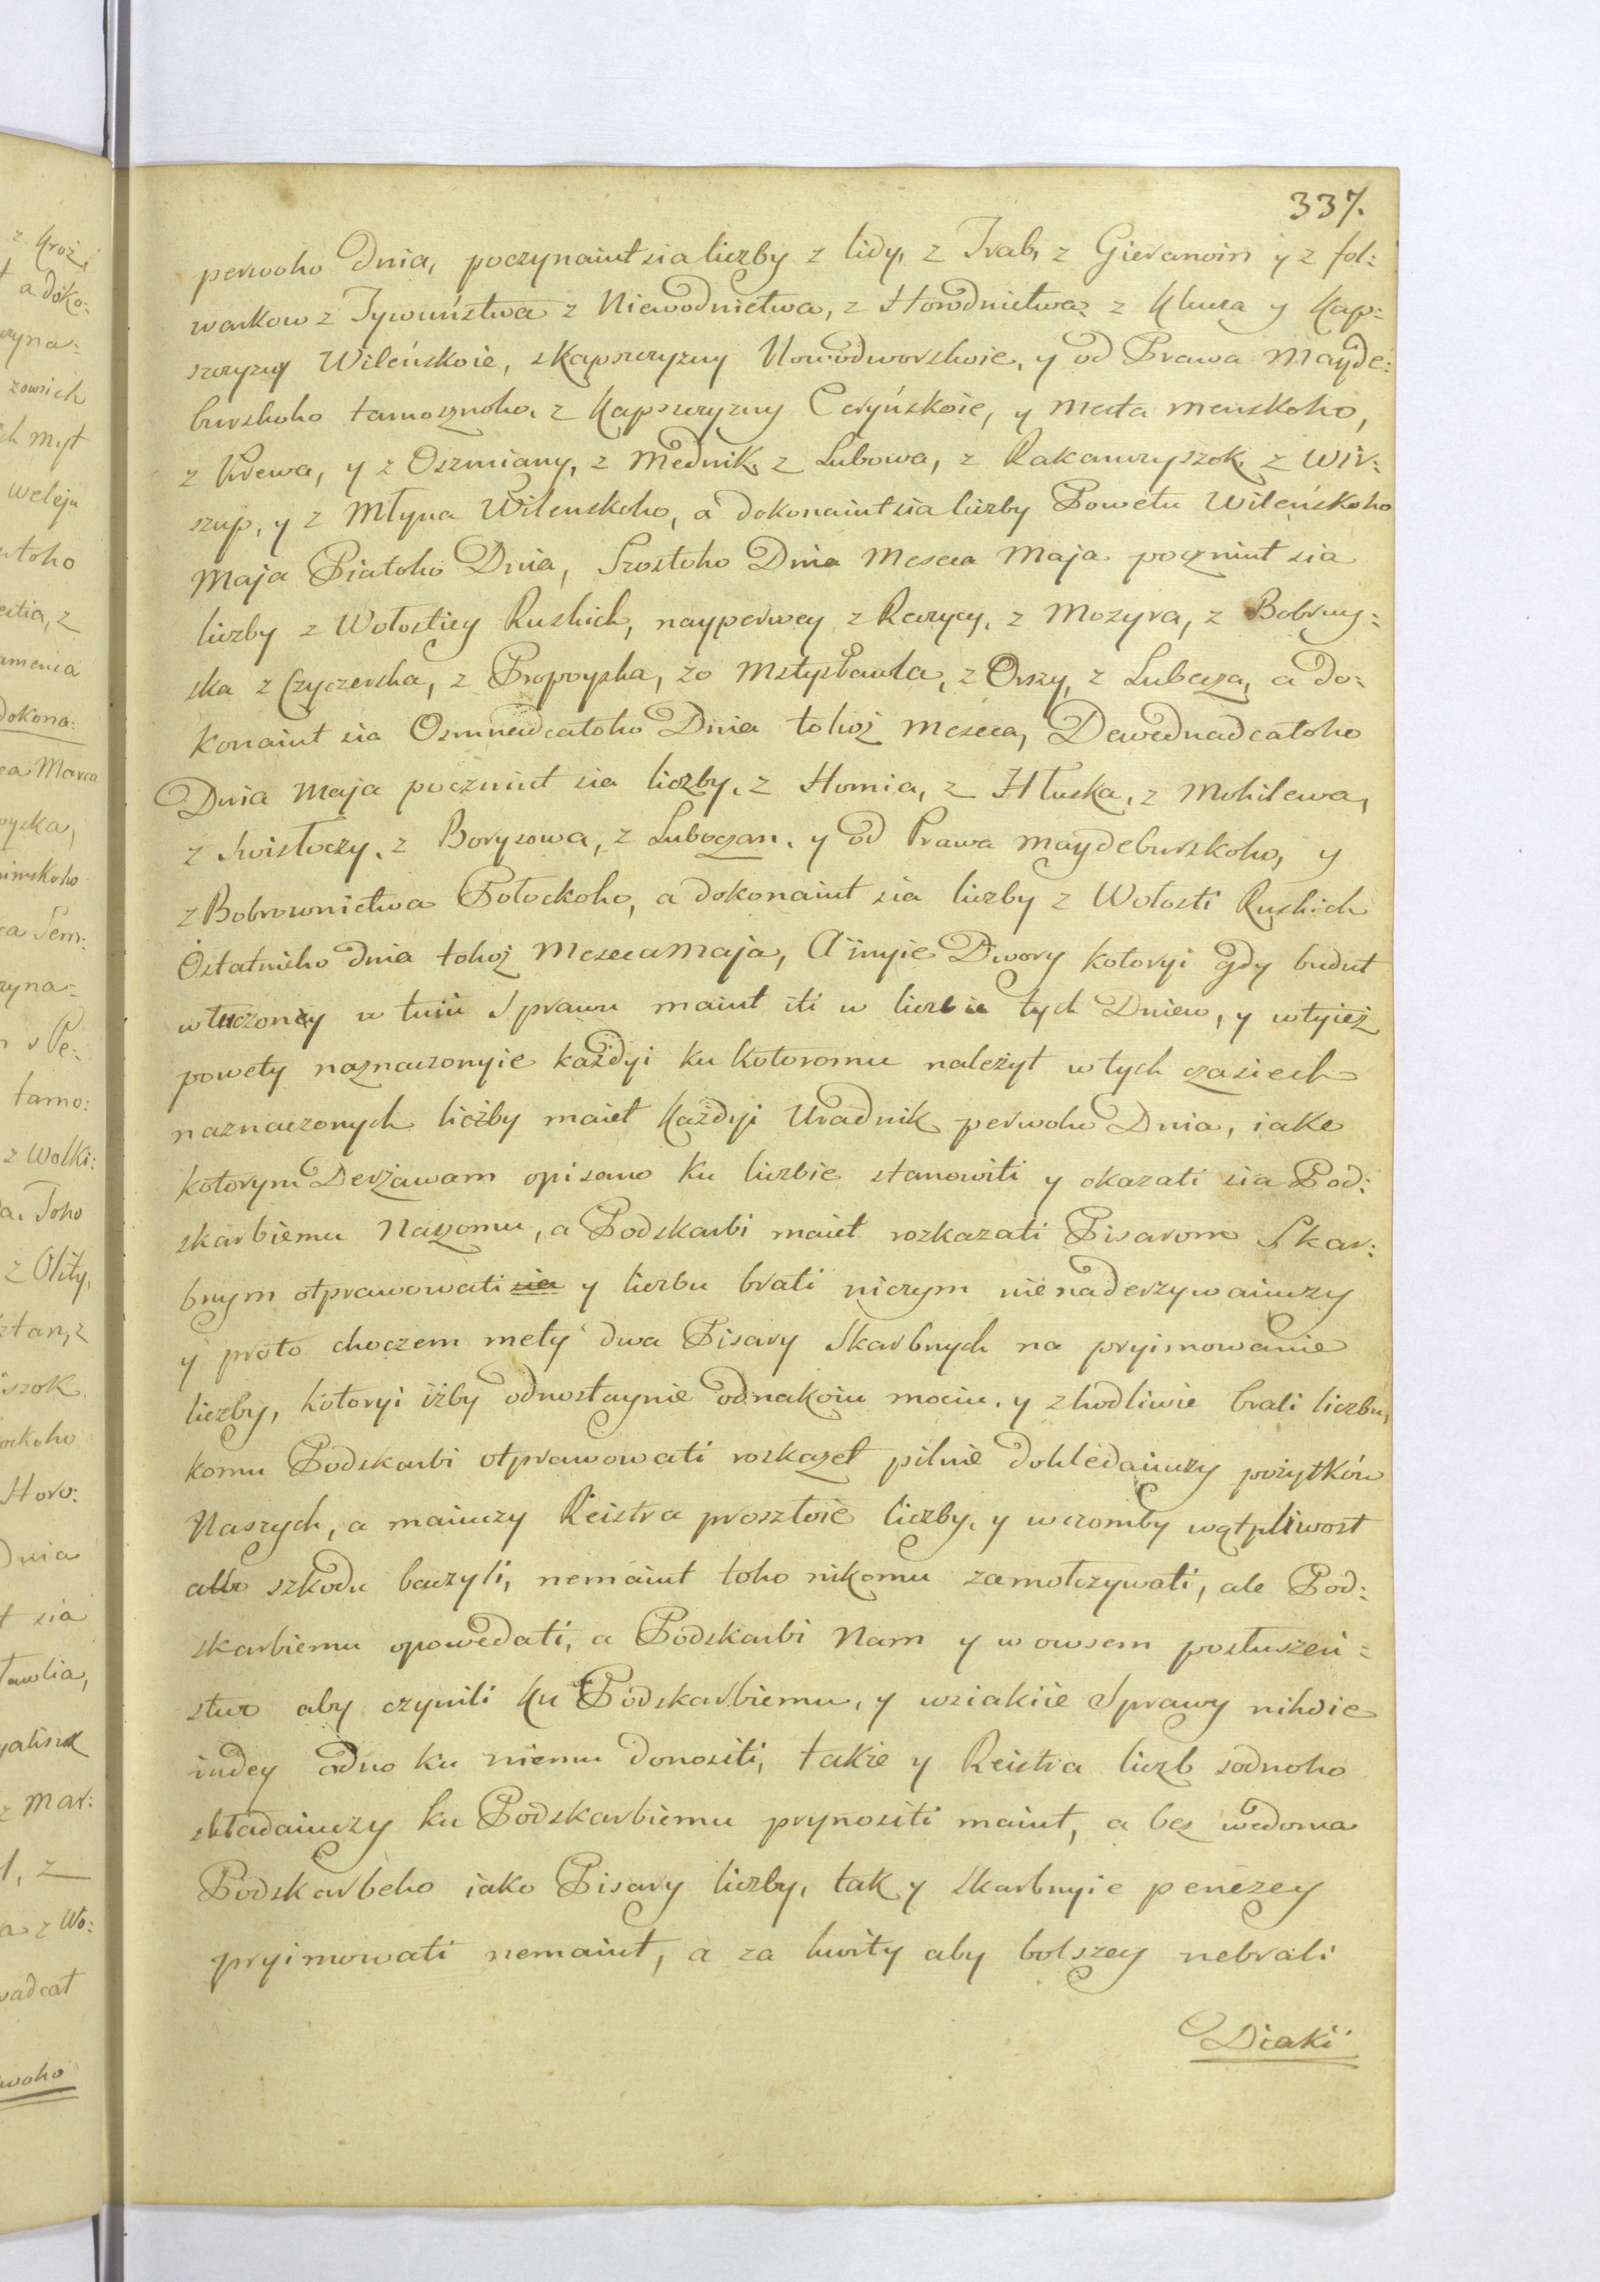 337.
perwoho Dnia, poczynaiut sia liczby z lidy, z Trab, z Gieranoin y z fol:
warkow z Tywuństwa z Niewodnictwa, z Horodnictwa, z Klucza y Kap:
szczyzny Wileńskoie, z Kapszczyzny Nowodworskoie, y od Prawa Mayde:
burskoho tamosznoho, z Kapszczyzny Ceryńskoie, y Mesta menskoho,
z Krewa, y z Oszmiany, z Mednik, z Lubowa, z Rakanczyszok, z Wir:
szup, y z Młyna Wilenskoho, a dokonaiut sia liczby Powetu Wileńskoho
Maja Piatoho Dnia, Szostoho Dnia Meseca Maja poczniut sia
liczby z Wołostiey Ruskich, nayperwey z Reczycy, z Mozyra, z Bobruy:
ska z Czyczerska, z Propoyska, zo Mstysławla, z Orszy, z Lubecza, a do:
konaiut sia Osmnadcatoho Dnia tohoż Meseca, Dewednadcatoho
Dnia Maja poczniut sia liczby, z Homia, z Hłuska, z Mohilewa,
z Swisłoczy, z Borysowa, z Luboczan, y od Prawa Maydeburskoho, y
z Bobrownictwa Połockoho, a dokonaiut sia liczby z Wołosti Ruskich
Ostatnieho dnia tohoż Meseca Maja, A inyie Dwory kotoryi gdy budut
włuczoney w tuiu Sprawu maiut iti w liczbie tych Dniew, y w tyież
powety naznaczonyie każdyi ku kotoromu należyt w tych czasiech
naznaczonych liczby maiet Każdyi Uradnik perwoho Dnia, iako
kotorym Derżawam opisano ku liczbie stanowiti y okazati sia Pod:
skarbiemu Naszomu, a Podskarbi maiet rozkazati Pisarom Skar:
bnym otprawowati sia y liczbu brati niczym nienaderzywaiuczy
y proto choczem mety dwa Pisary Skarbnych na pryimowanie
liczby, kotoryi iżby odnostaynie odnakoiu mociu, y zhodliwie brali liczbu,
komu Podskarbi otprawowati roskażet pilnie dohledaiuczy pożytków
Naszych, a maiuczy Reistra proszłoie liczby, y w czomby wątpliwost
albo szkodu baczyli, nemaiut toho nikomu zamołczywati, ale Pod:
skarbiemu opowedati, a Podskarbi Nam y w owsem posłuszeń:
stwo aby czynili ku Podskarbiemu, y wsiakiie Sprawy nihdie
indey odno ku niemu donositi, takie y Reistra liczb sodnoho
składaiuczy ku Podskarbiemu prynositi maiut, a bez wedoma
Podskarbeho iako Pisary liczby, tak y skarbnyie penezey
pryimowati nemaiut, a za kwity aby bolszey nebrali
Diaki
z Kroż,
a doko:
zowsich
Weleju
dokona:
ca Marca
z Wolki:
Toho
z Olity,
Horo:
Dnia
sia
z Mar:
z Wo:
woho